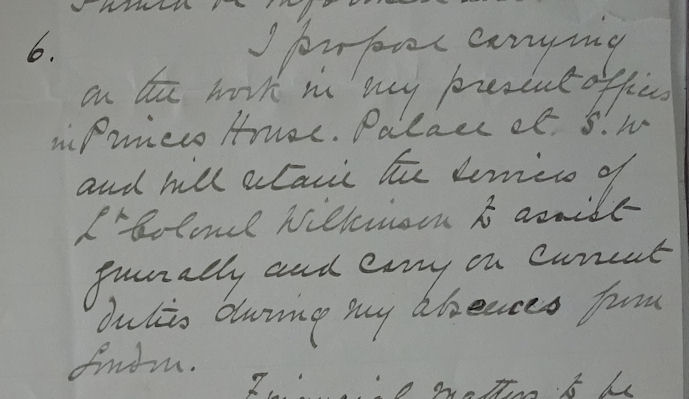 6. I propose carrying
on the work in my present offices
in Princes House. Palace st. S.W
and will retain the services of
Lt Colonel Wilkinson to assist
generally and carry on current
duties during my absences from
London.
Financial matters to be